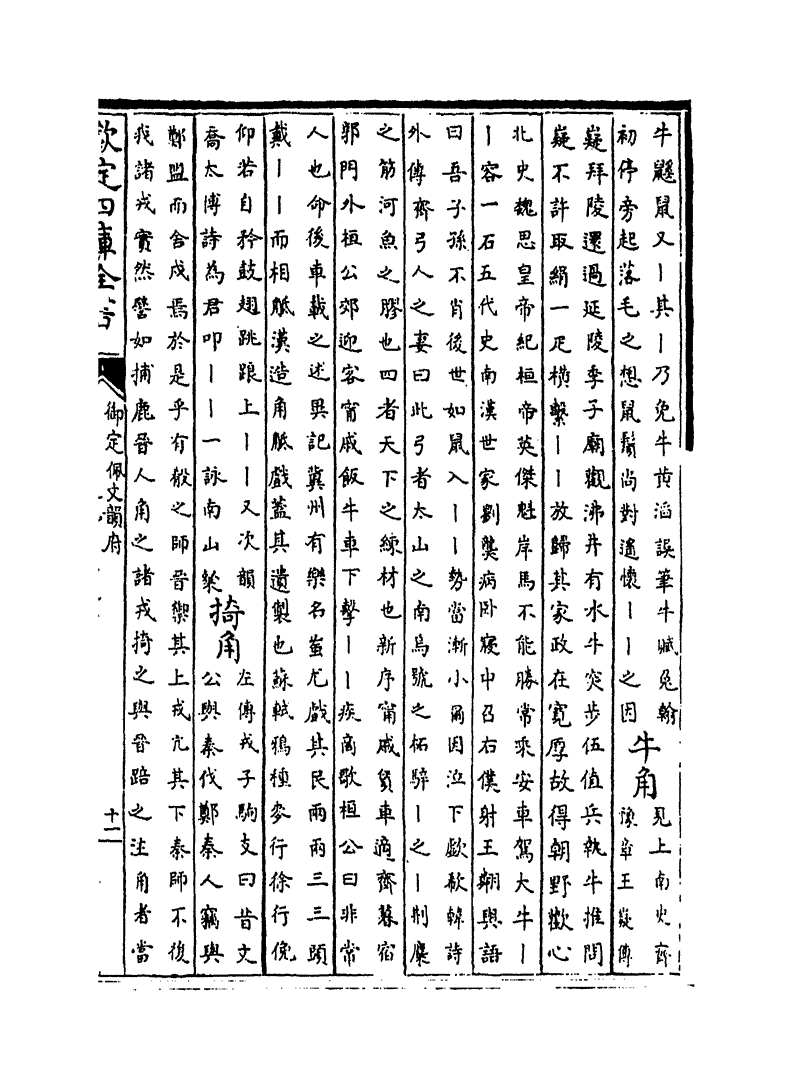 牛鼷鼠又丨其丨乃免牛黄滔誤筆牛賦兔翰
初停旁起落毛之想鼠鬚尚對遙懷丨丨之因
牛角
見上南史齊
豫章王嶷傳
嶷拜陵還過延陵季子廟觀沸井有水牛突步伍值兵執牛推問
嶷不許取絹一疋橫繫丨丨放歸其家政在寛厚故得朝野歡心
北史魏思皇帝紀桓帝英傑魁岸馬不能勝常乘安車駕大牛丨
丨容一石五代史南漢世家劉龑病卧寢中召右僕射王翷與語
曰吾子孫不肖後世如鼠入丨丨勢當漸小爾因泣下歔欷韓詩
外傳齊弓人之妻曰此弓者太山之南烏號之柘騂丨之丨荆麋
之筋河魚之膠也四者天下之練材也新序甯戚貧車適齊暮宿
郭門外桓公郊迎客甯戚飯牛車下擊丨丨疾商歌桓公曰非常
人也命後車載之述異記冀州有樂名蚩尤戲其民兩兩三三頭
戴丨丨而相觝漢造角觝戲蓋其遺製也蘇軾鴉種麥行徐行俛
仰若自矜鼓翅跳踉上丨丨又次韻
喬太博詩為君叩丨丨一詠南山粲
掎角
左傳戎子駒支曰昔文
公與秦伐鄭秦人竊與
鄭盟而舍戍焉於是乎有殽之師晉禦其上戎亢其下秦師不復
我諸戎實然譬如捕鹿晉人角之諸戎掎之與晉踣之注角者當
欽定四庫全書
御定佩文韻府
十二